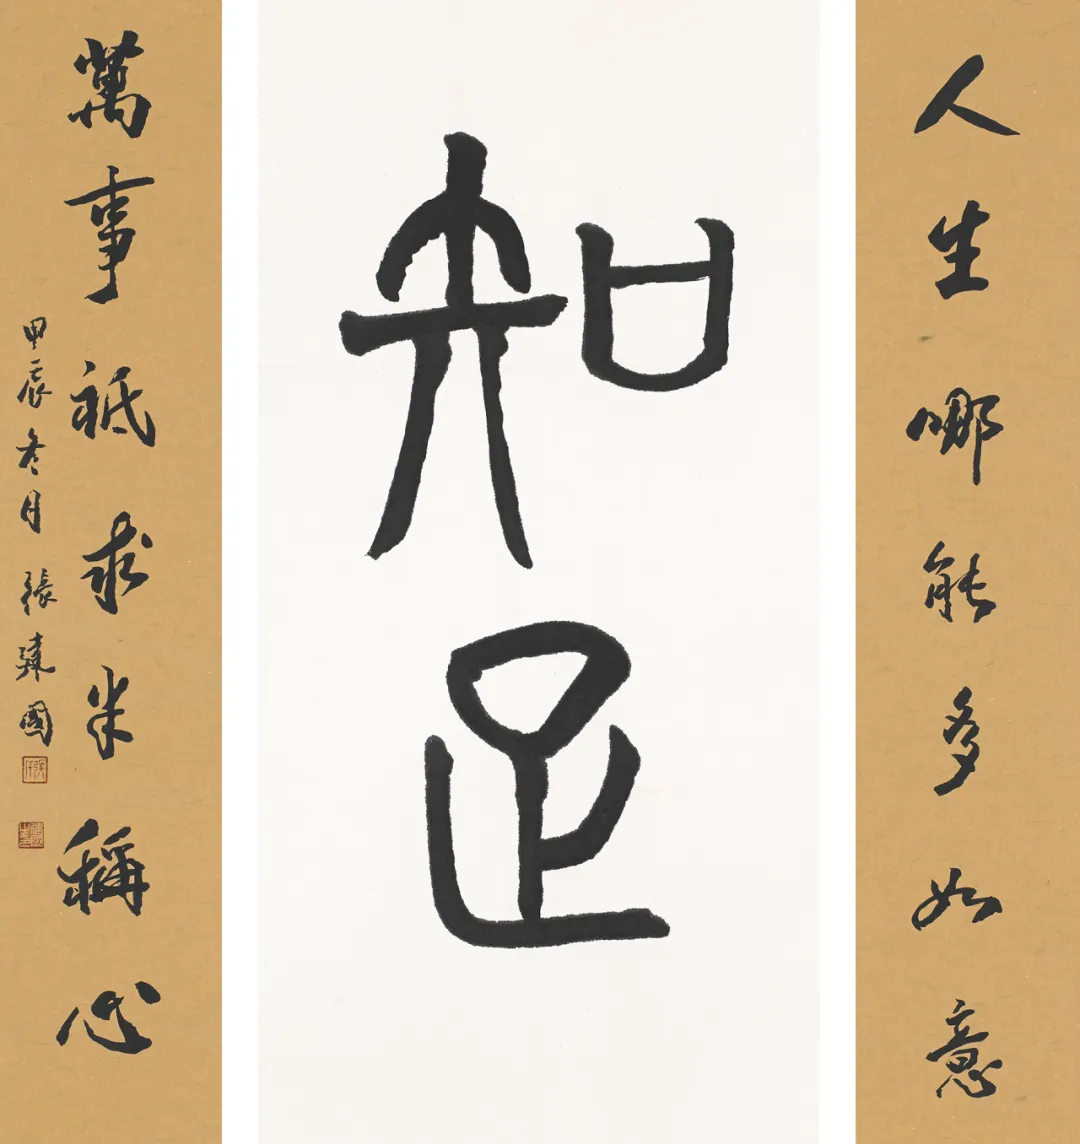 人生哪能多如意
知足
萬事祗求半稱心
甲辰冬月 張建國